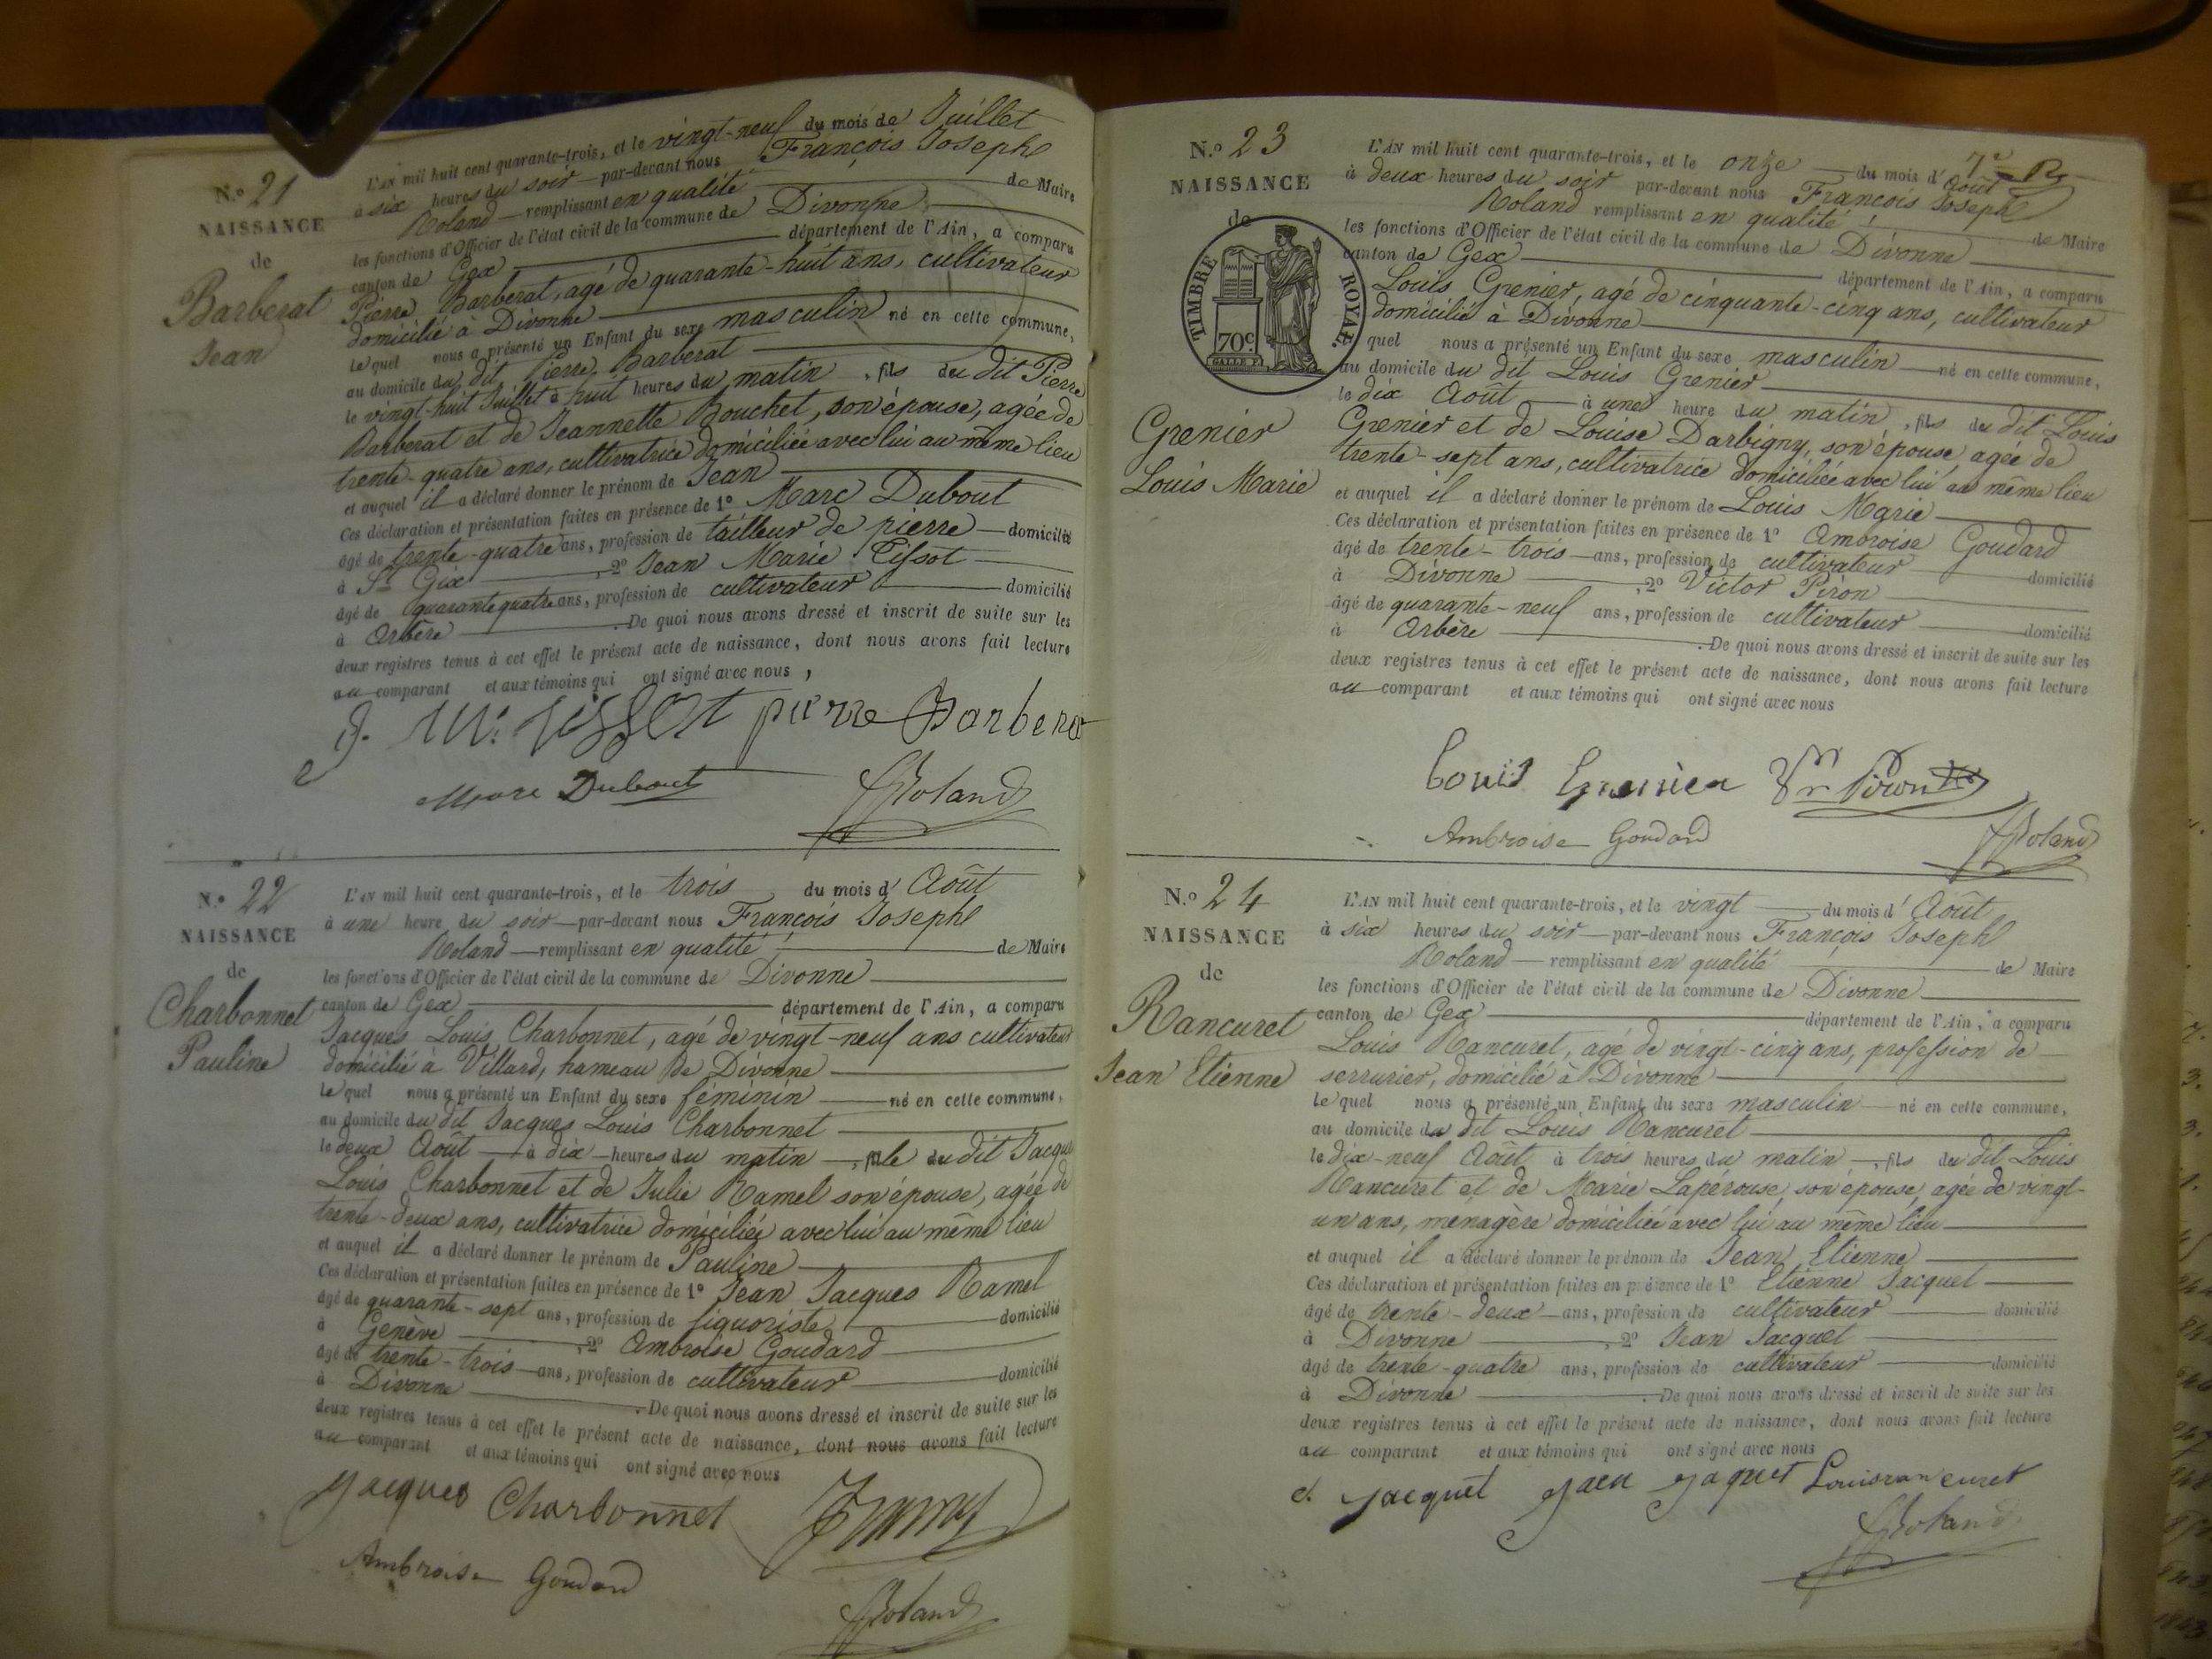 N.º 21
NAISSANCE
de
Barberat
Jean
L'AN mil huit cent quarante-trois, et le vingt-neuf du mois de Juillet
à six heures du soir par-devant nous François Joseph
Roland remplissant en qualité de Maire
les fonctions d'Officier de l'état civil de la commune de Divonne
canton de Gex département de l'Ain, a comparu
Pierre Barberat, agé de quarante-huit ans, cultivateur
domicilié à Divonne
lequel nous a présenté un Enfant du sexe masculin né en cette commune,
au domicile du dit Pierre Barberat
le vingt-huit Juillet à huit heures du matin, fils du dit Pierre
Barberat et de Jeannette Bouchet, son épouse, agée de
trente-quatre ans, cultivatrice domiciliée avec lui au même lieu
et auquel il a déclaré donner le prénom de Jean
Ces déclaration et présentation faites en présence de 1º Marc Dubout
âgé de trente-quatre ans, profession de tailleur de pierre domicilié
à St Gix, 2º Jean Marie Tissot
âgé de quarante quatre ans, profession de cultivateur domicilié
à Arbère. De quoi nous avons dressé et inscrit de suite sur les
deux registres tenus à cet effet le présent acte de naissance, dont nous avons fait lecture
au comparant et aux témoins qui ont signé avec nous,
J. M. Tissot pierre Barberat
Marc Dubout
Roland
N.º 22
NAISSANCE
de
Charbonnet
Pauline
L'AN mil huit cent quarante-trois, et le trois du mois d'Août
à une heure du soir par-devant nous François Joseph
Roland remplissant en qualité de Maire
les fonctions d'Officier de l'état civil de la commune de Divonne
canton de Gex département de l'Ain, a comparu
Jacques Louis Charbonnet, agé de vingt-neuf ans cultivateur
domicilié à Villard, hameau de Divonne
lequel nous a présenté un Enfant du sexe féminin né en cette commune,
au domicile du dit Jacques Louis Charbonnet
le deux Août à dix heures du matin, fille du dit Jacques
Louis Charbonnet et de Julie Ramel son épouse, agée de
trente-deux ans, cultivatrice domiciliée avec lui au même lieu
et auquel il a déclaré donner le prénom de Pauline
Ces déclaration et présentation faites en présence de 1º Jean Jacques Ramel
âgé de quarante-sept ans, profession de liquoriste domicilié
à Genève, 2º Ambroise Goudard
âgé de trente-trois ans, profession de cultivateur domicilié
à Divonne. De quoi nous avons dressé et inscrit de suite sur les
deux registres tenus à cet effet le présent acte de naissance, dont nous avons fait lecture
au comparant et aux témoins qui ont signé avec nous
Jacques Charbonnet
Ambroise Goudard
Roland
7e
N.º 23
NAISSANCE
de
TIMBRE ROYAL
70c.
Grenier
Louis Marie
L'AN mil huit cent quarante-trois, et le onze du mois d'Août
à deux heures du soir par-devant nous François Joseph
Roland remplissant en qualité de Maire
les fonctions d'Officier de l'état civil de la commune de Divonne
canton de Gex département de l'Ain, a comparu
Louis Grenier, agé de cinquante-cinq ans, cultivateur
domicilié à Divonne
quel nous a présenté un Enfant du sexe masculin né en cette commune,
au domicile du dit Louis Grenier
le dix Août à une heure du matin, fils du dit Louis
Grenier et de Louise Darbigny, son épouse agée de
trente-sept ans, cultivatrice domiciliée avec lui au même lieu
et auquel il a déclaré donner le prénom de Louis Marie
Ces déclaration et présentation faites en présence de 1º Ambroise Goudard
âgé de trente-trois ans, profession de cultivateur domicilié
à Divonne, 2º Victor Piron
âgé de quarante-neuf ans, profession de cultivateur domicilié
à Arbère. De quoi nous avons dressé et inscrit de suite sur les
deux registres tenus à cet effet le présent acte de naissance, dont nous avons fait lecture
au comparant et aux témoins qui ont signé avec nous
Louis Grenier Vr Piron
Ambroise Goudard
Roland
N.º 24
NAISSANCE
de
Rancuret
Jean Etienne
L'AN mil huit cent quarante-trois, et le vingt du mois d'Août
à six heures du soir par-devant nous François Joseph
Roland remplissant en qualité de Maire
les fonctions d'Officier de l'état civil de la commune de Divonne
canton de Gex département de l'Ain, a comparu
Louis Rancuret, agé de vingt-cinq ans, profession de
serrurier, domicilié à Divonne
lequel nous a présenté un Enfant du sexe masculin né en cette commune,
au domicile du dit Louis Rancuret
le dix-neuf Août à trois heures du matin, fils du dit Louis
Rancuret et de Marie Lapérouse son épouse, agée de vingt-
un ans, menagère domiciliée avec lui au même lieu
et auquel il a déclaré donner le prénom de Jean Etienne
Ces déclaration et présentation faites en présence de 1º Etienne Jacquet
âgé de trente-deux ans, profession de cultivateur domicilié
à Divonne, 2º Jean Jacquet
âgé de trente-quatre ans, profession de cultivateur domicilié
à Divonne. De quoi nous avons dressé et inscrit de suite sur les
deux registres tenus à cet effet le présent acte de naissance, dont nous avons fait lecture
au comparant et aux témoins qui ont signé avec nous
e. jacquet jean jaquet Louis rancuret
Roland